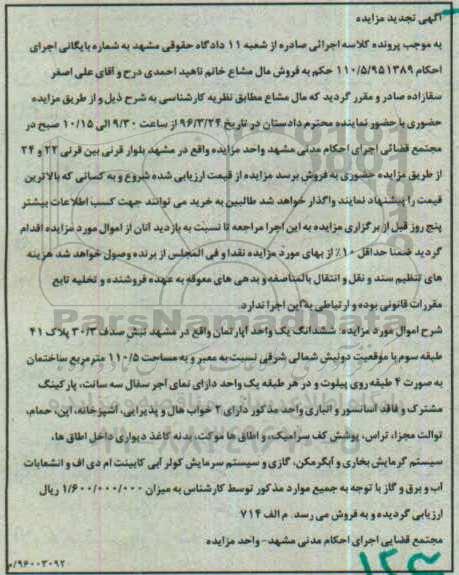 آگهی تجدید مزایده
به موجب پرونده کلاسه اجرائی صادره از شعبه ۱۱ دادگاه حقوقی مشهد به شماره بایگانی اجرای
احکام ۱۱۰/۵/۹۵۱۳۸۹ حکم به فروش مال مشاع خانم ناهید احمدی درح و آقای علی اصغر
سقازاده صادر و مقرر گردید که مال مشاع مطابق نظریه کارشناسی به شرح ذیل و از طریق مزایده
حضوری با حضور نماینده محترم دادستان در تاریخ ۹۶/۳/۲۴ از ساعت ۹/۳۰ الی ۱۰/۱۵ صبح در
مجتمع قضائی اجرای احکام مدنی مشهد واحد مزایده واقع در مشهد بلوار قرنی بین قرنی ۲۲ و ۲۴
از طریق مزایده حضوری به فروش برسد مزایده از قیمت ارزیابی شده شروع و به کسانی که بالاترین
قیمت را پیشنهاد نمایند واگذار خواهد شد طالبین به خرید می توانند جهت کسب اطلاعات بیشتر
پنج روز قبل از برگزاری مزایده به این اجرا مراجعه تا نسبت به بازدید آنان از اموال مورد مزایده اقدام
گردید ضمنا حداقل ۱۰٪ از بهای مورد مزایده نقدا و فی المجلس از برنده وصول خواهد شد هزینه
های تنظیم سند و نقل و انتقال بالمناصفه و بدهی های معوقه به عهده فروشنده و تخلیه تابع
مقررات قانونی بوده و ارتباطی به این اجرا ندارد.
شرح اموال مورد مزایده: ششدانگ یک واحد آپارتمان واقع در مشهد نبش صدف ۳۰/۳ پلاک ۴۱
طبقه سوم با موقعیت دونبش شمالی شرقی نسبت به معبر و به مساحت ۱۱۰/۵ مترمربع ساختمان
به صورت ۴ طبقه روی پیلوت و در هر طبقه یک واحد دارای نمای آجر سفال سه سانت، پارکینگ
مشترک و فاقد آسانسور و انباری واحد مذکور دارای ۲ خواب هال و پذیرایی، آشپزخانه، اپن، حمام،
توالت مجزا، تراس، پوشش کف سرامیک، و اطاق ها موکت، بدنه کاغذ دیواری داخل اطاق ها،
سیستم گرمایش بخاری و آبگرمکن، گازی و سیستم سرمایش کولر آبی کابینت ام دی اف و انشعابات
آب و برق و گاز با توجه به جمیع موارد مذکور توسط کارشناس به میزان ۱/۶۰۰/۰۰۰/۰۰۰ ریال
ارزیابی گردیده و به فروش می رسد. م الف ۷۱۴
مجتمع قضایی اجرای احکام مدنی مشهد- واحد مزایده
۹۶۰۰۳۰۹۲/م
ParsNamadData